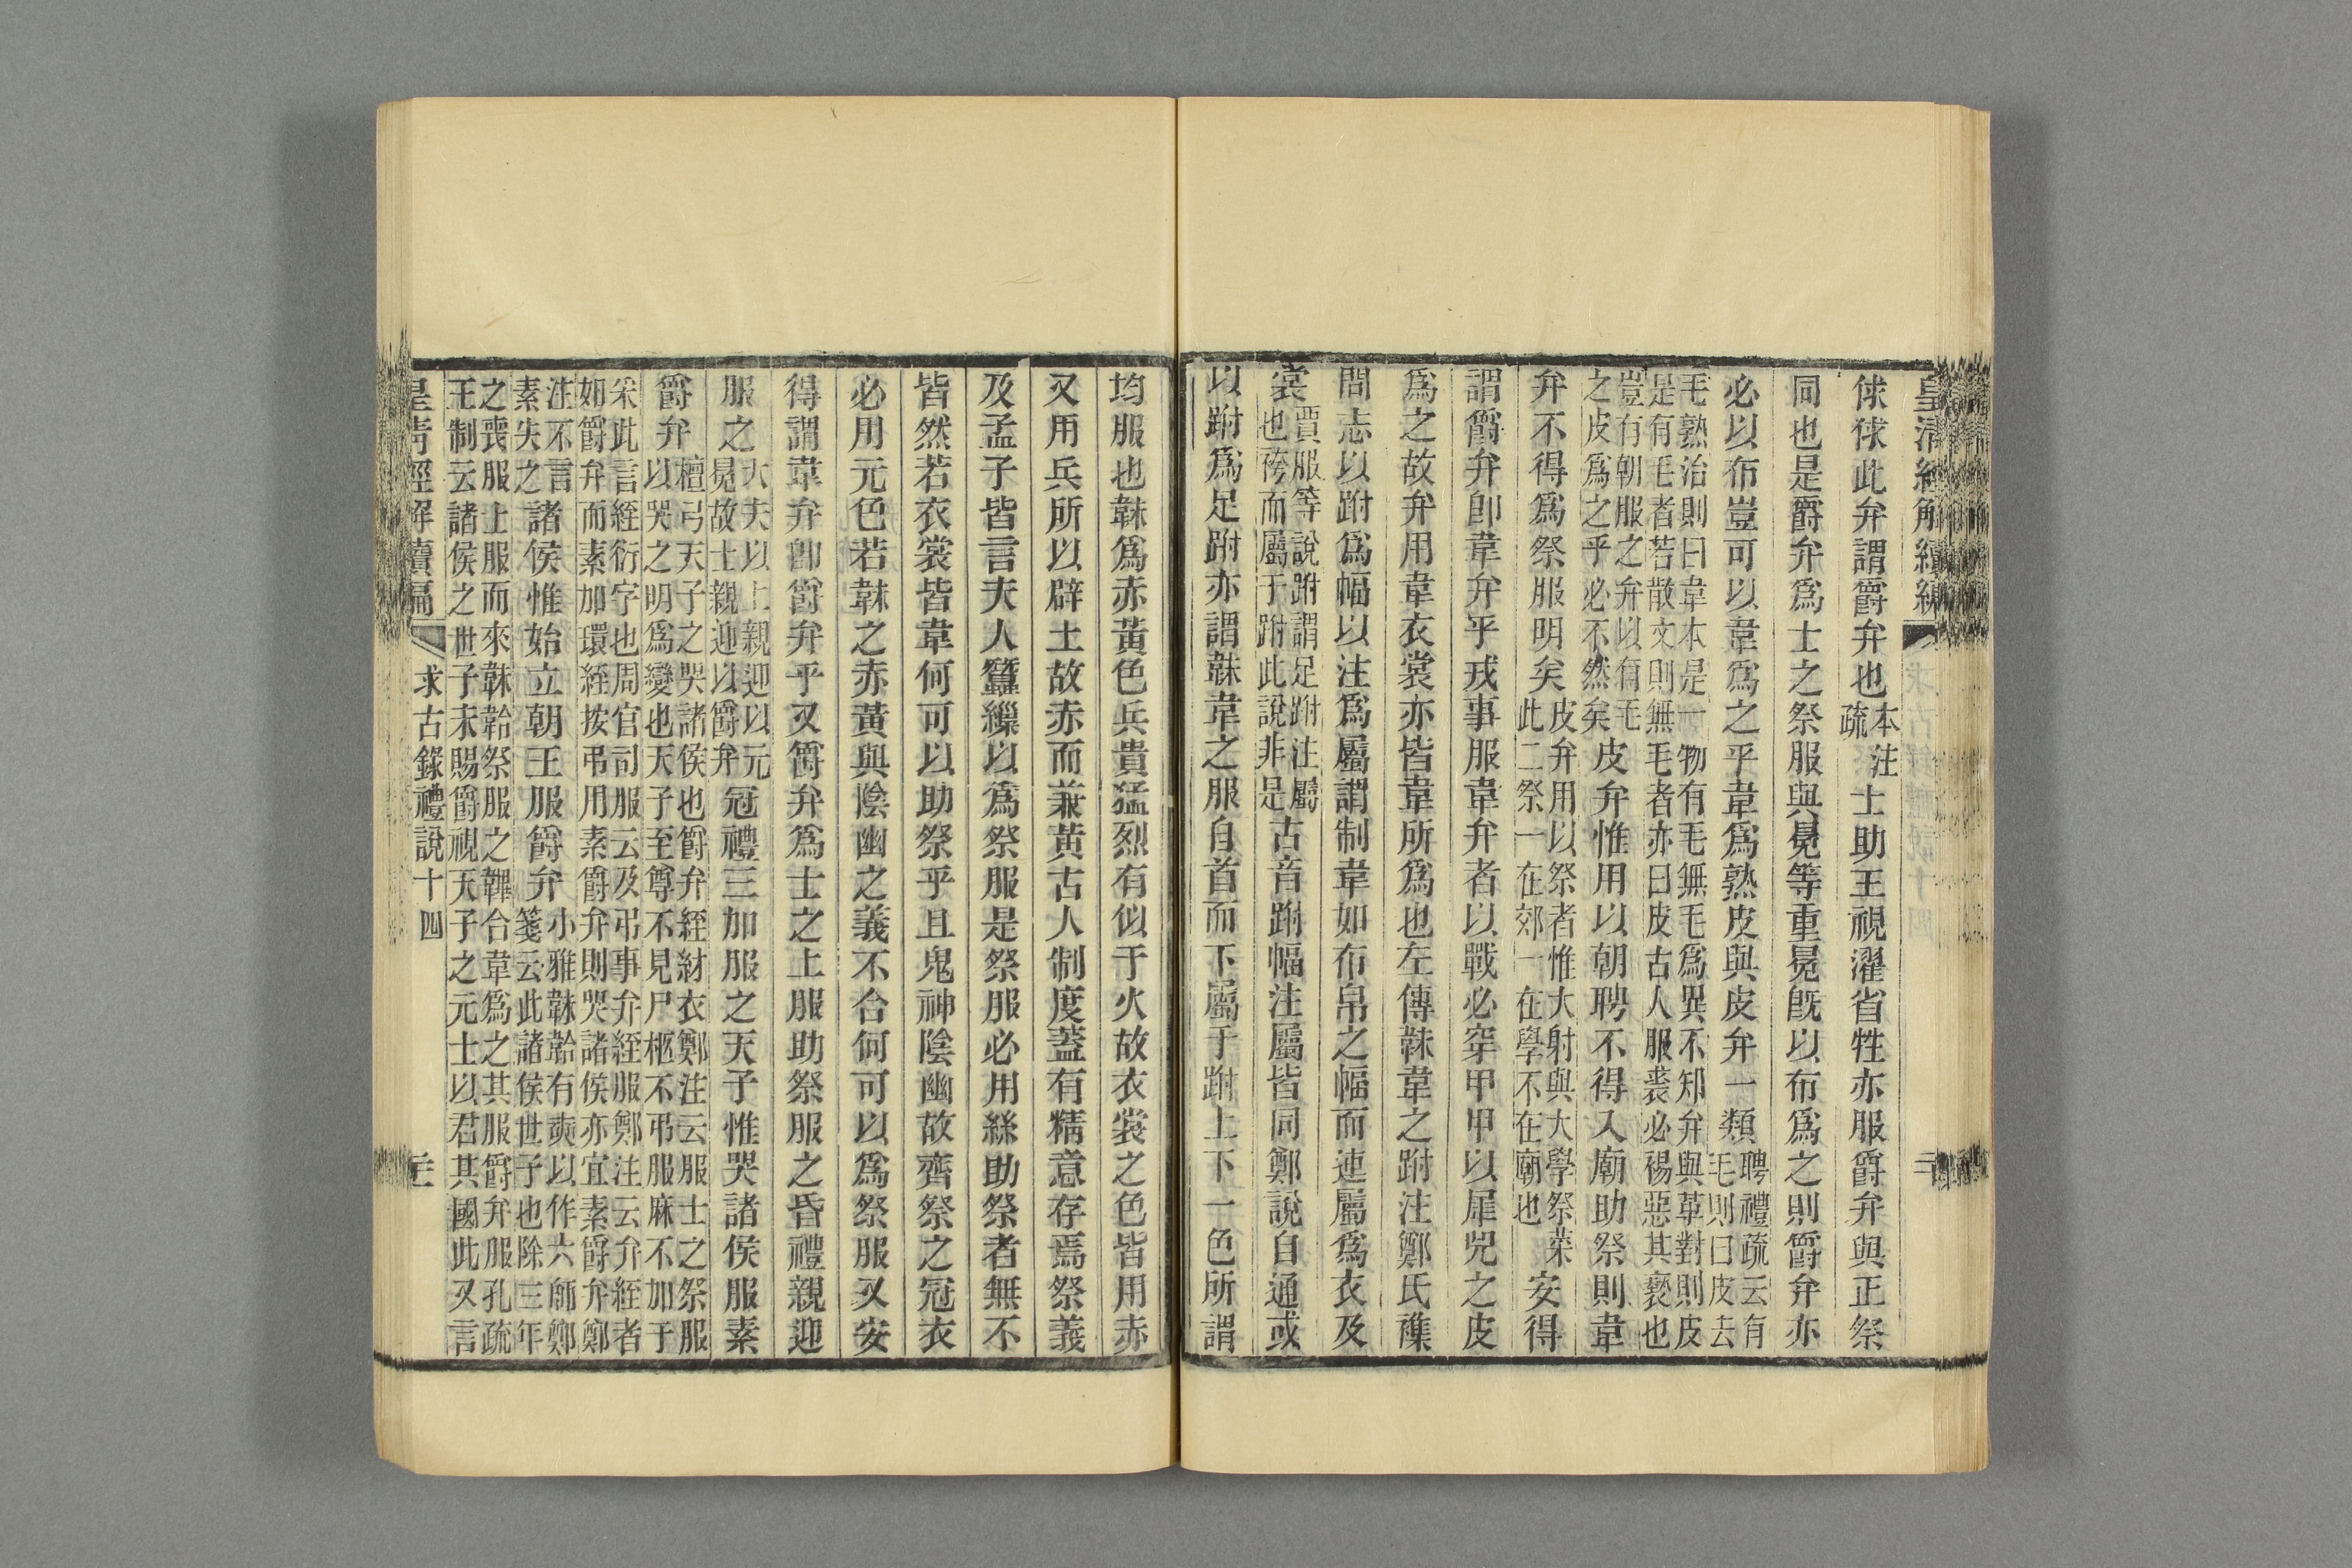 皇清經解續編
俅俅此弁謂爵弁也本注疏士助王視濯省牲亦服爵弁與正祭
同也是爵弁爲士之祭服與冕等重冕旣以布爲之則爵弁亦
必以布豈可以韋爲之乎韋爲熟皮與皮弁一類聘禮疏云有毛則曰皮去
毛熟治則曰韋本是一物有毛無毛爲異不知弁與革對則皮
是有毛者若散文則無毛者亦曰皮古人服裘必裼惡其褻也
豈有朝服之弁以有毛之皮爲之乎必不然矣皮弁惟用以朝聘不得入廟助祭則韋
弁不得爲祭服明矣皮弁用以祭者惟大射與大學祭菜此二祭一在郊一在學不在廟也安得
謂爵弁卽韋弁乎戎事服韋弁者以戰必穿甲甲以犀兕之皮
爲之故弁用韋衣裳亦皆韋所爲也左傳韎韋之跗注鄭氏雜
問志以跗爲幅以注爲屬謂制韋如布帛之幅而連屬爲衣及
裳賈服等說跗謂足跗注屬也袴而屬于跗此說非是古音跗幅注屬皆同鄭說自通或
以跗爲足跗亦謂韎韋之服自首而下屬于跗上下一色所謂
均服也韎爲赤黃色兵貴猛烈有似于火故衣裳之色皆用赤
又用兵所以辟土故赤而兼黃古人制度蓋有精意存焉祭義
及孟子皆言夫人蠶繅以爲祭服是祭服必用絲助祭者無不
皆然若衣裳皆韋何可以助祭乎且鬼神陰幽故齊祭之冠衣
必用元色若韎之赤黃與陰幽之義不合何可以爲祭服又安
得謂韋弁卽爵弁乎又爵弁爲士之上服助祭服之昏禮親迎
服之大夫以上親迎以元冕故士親迎以爵弁冠禮三加服之天子惟哭諸侯服素
爵弁檀弓天子之哭諸侯也爵弁絰紂衣鄭注云服士之祭服以哭之明爲變也天子至尊不見尸柩不弔服麻不加于
采此言絰衍字也周官司服云及弔事弁絰服鄭注云弁絰者
如爵弁而素加環絰按弔用素爵弁則哭諸侯亦宜素爵弁鄭
注不言素失之諸侯惟始立朝王服爵弁小雅韎韐有奭以作六師鄭箋云此諸侯世子也除三年
之喪服士服而來韎韐祭服之韠合韋爲之其服爵弁服孔疏
王制云諸侯之世子未賜爵視天子之元士以君其國此又言
皇淸經解續編 求古錄禮說十四